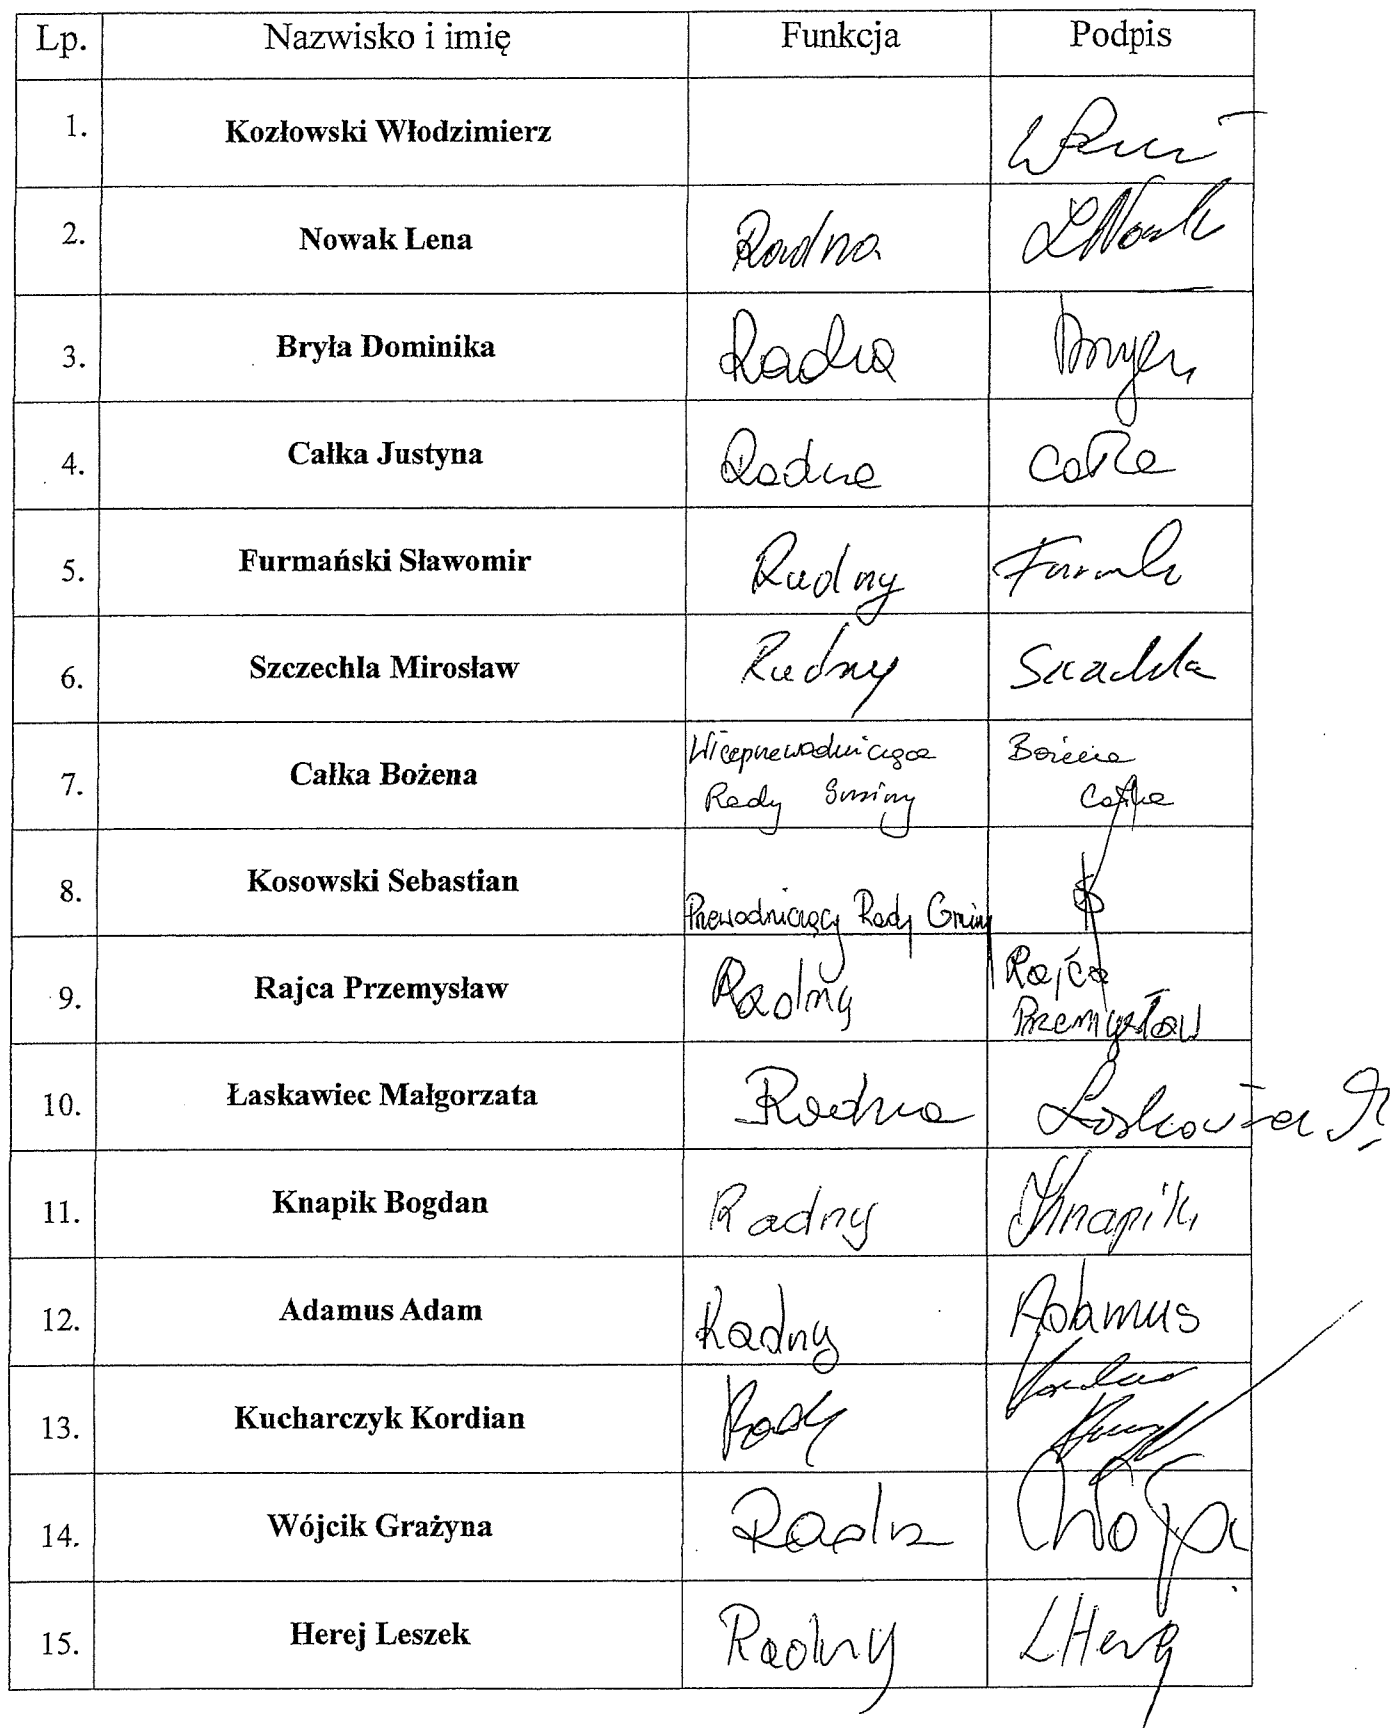 Lp. Nazwisko i imię Funkcja Podpis
1. Kozłowski Włodzimierz
2. Nowak Lena Radna LNowak
3. Bryła Dominika Radna
4. Całka Justyna Radna Całka
5. Furmański Sławomir Radny
6. Szczechla Mirosław Radny
7. Całka Bożena Wiceprzewodnicząca Bożena
Rady Gminy Całka
8. Kosowski Sebastian Przewodniczący Rady Gminy
9. Rajca Przemysław Radny Rajca
Przemysław
10. Łaskawiec Małgorzata Radna Łaskawiec M
11. Knapik Bogdan Radny Knapik
12. Adamus Adam Radny Adamus
13. Kucharczyk Kordian
14. Wójcik Grażyna Radna
15. Herej Leszek Radny LHerej